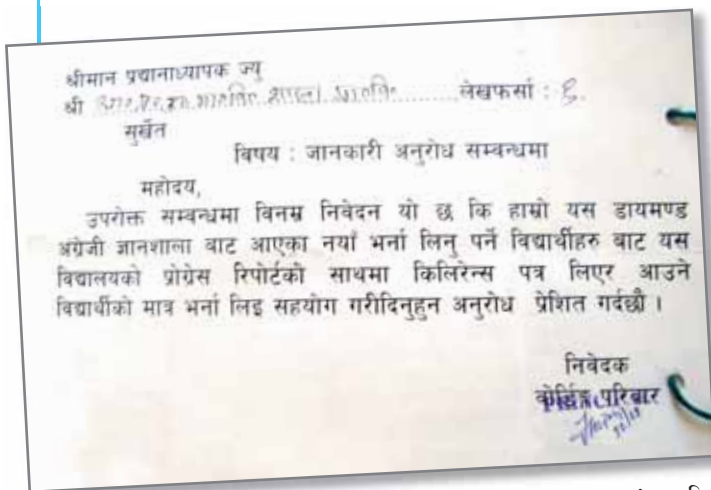 श्रीमान प्रधानाध्यापक ज्यु
श्री लेखफर्सा : ६.
सुर्खेत
विषय : जानकारी अनुरोध सम्बन्धमा
महोदय,
उपरोक्त सम्बन्धमा विनम्र निवेदन यो छ कि हाम्रो यस डायमण्ड
अंग्रेजी ज्ञानशाला बाट आएका नयाँ भर्ना लिनु पर्ने विद्यार्थीहरु बाट यस
विद्यालयको प्रोग्रेस रिपोर्टको साथमा किलिरेन्स पत्र लिएर आउने
विद्यार्थीको मात्र भर्ना लिइ सहयोग गरीदिनुहुन अनुरोध प्रेशित गर्दछौ ।
निवेदक
परिबार